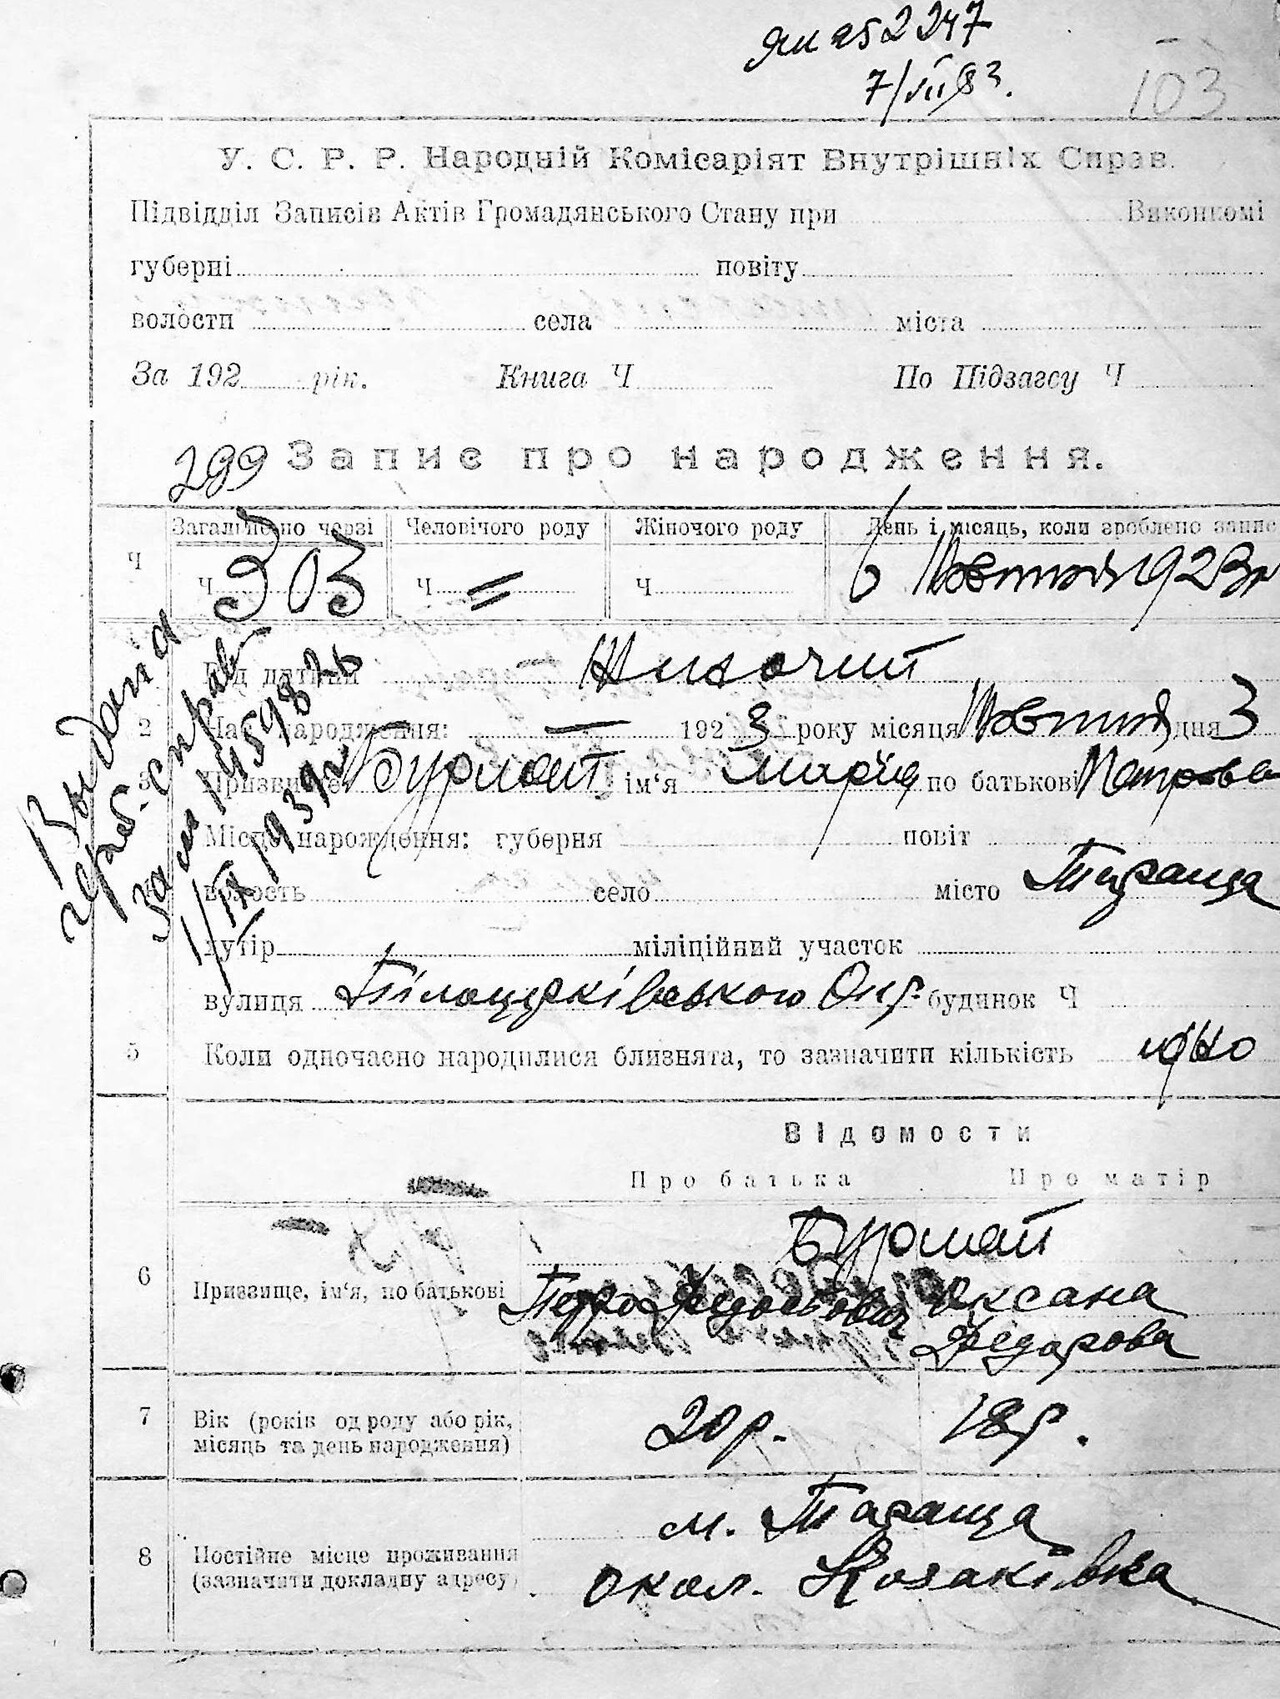 252247
7/VII 83.
103
У. С. Р. Р. Народній Комісаріят Внутрішніх Справ.
Підвідділ Записів Актів Громадянського Стану при Виконкомі
губерні повіту
волости села міста
За 192 рік. Книга Ч По Підзагсу Ч
299 Запис про народження.
Загальне по черзі Человічого роду Жіночого роду День і місяць, коли зроблено запис
Ч Ч 303 Ч = Ч 6 Жовтня 1923р
Видана
за № 14598
1/IX 1939
Рід дитини Жіночий
2 Час народження: 1923 року місяця Жовтня дня 3
3 Призвище Бурлат ім'я Марія по батькові Петрова
Місце народження: губерня повіт
волость село місто Тараща
хутір міліційний участок
вулиця Білоцерківського Окр. будинок Ч
5 Коли одночасно народилися близнята, то зазначити кількість одно
Відомости
Про батька Про матір
Бурлат
6 Призвище, ім'я, по батькові Петро Оксана
Федорова
7 Вік (років од роду або рік, 20р. 18р.
місяць та день народження)
м. Тараща
8 Постійне місце проживання
(зазначити докладну адресу) окол. Козаківка